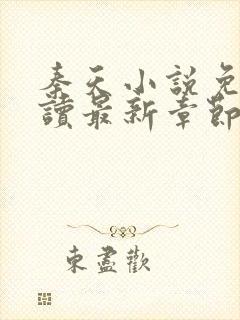 秦天小說免
讀最新章節
東盡歡